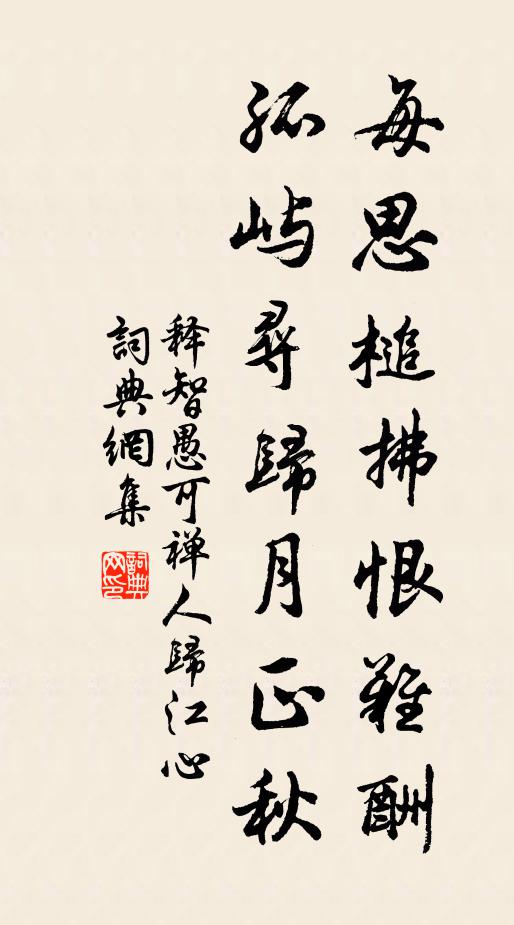 每思槌拂恨難酬
孤屿尋歸月正秋
释智愚可禅人歸江心
詞典網集
詞典網印